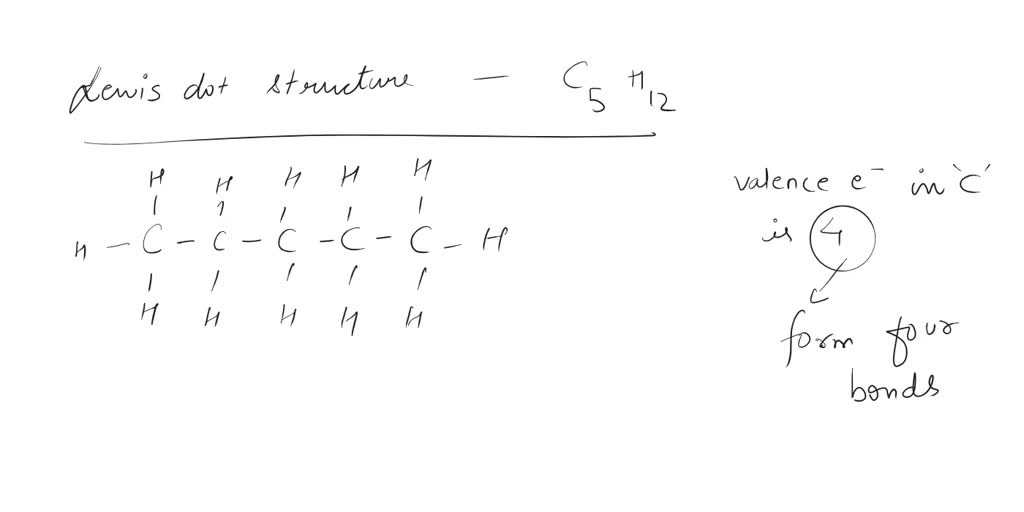 Lewis dot structure — C5 H12
H H H H H
H - C - C - C - C - C - H
H H H H H
valence e⁻ in 'C'
is 4
form four
bonds